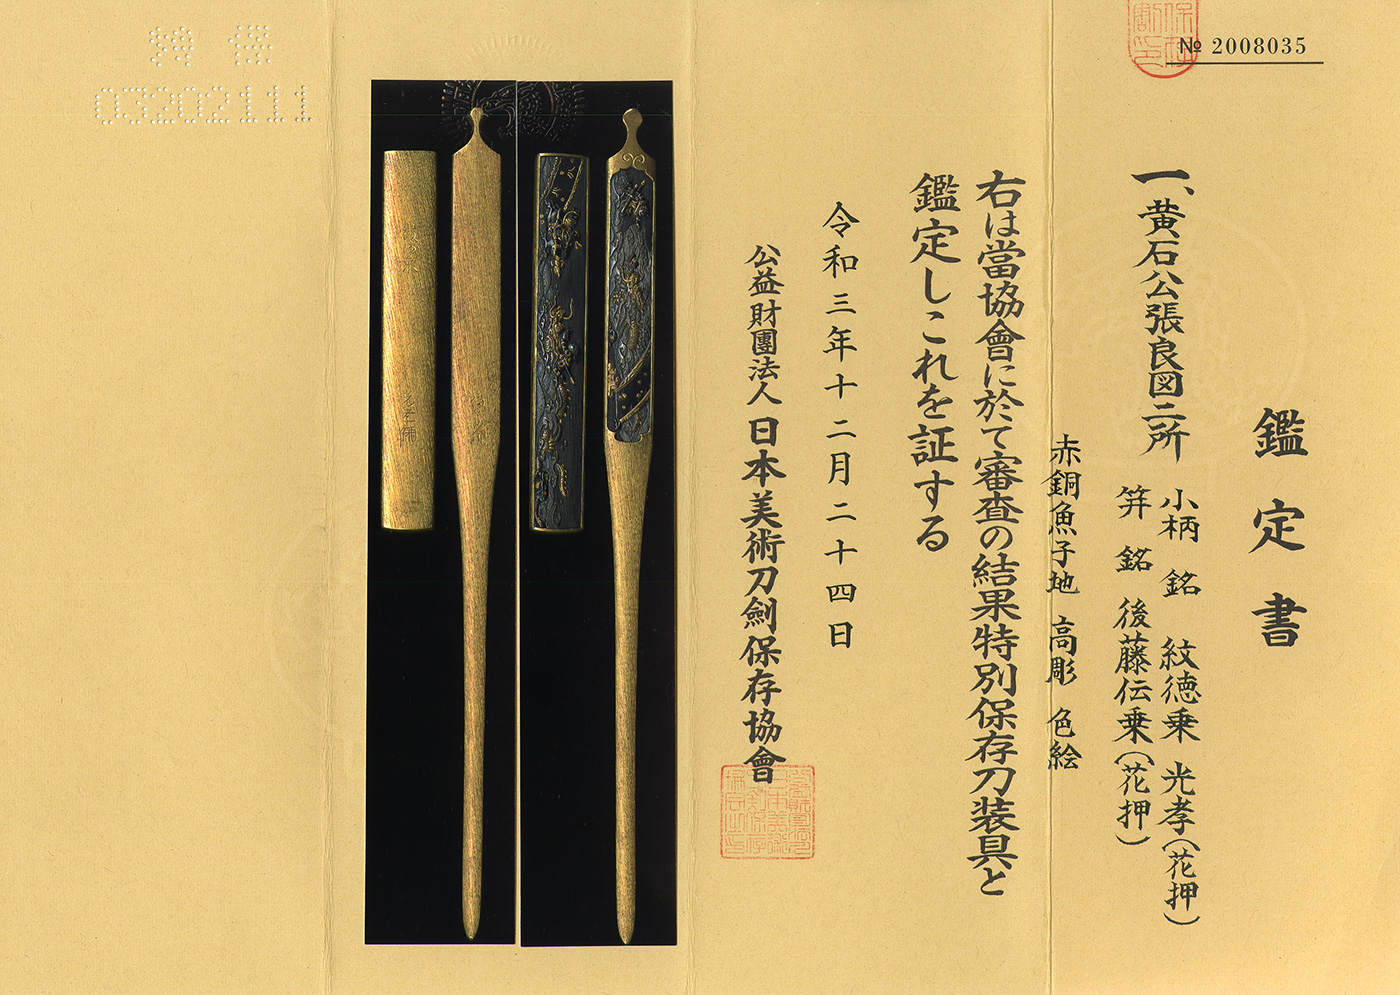 № 2008035
鑑定書
一、黄石公張良図二所
小柄 銘 紋徳乗 光孝(花押)
笄 銘 後藤伝乗(花押)
赤銅魚子地 高彫 色絵
右は當協會に於て審査の結果特別保存刀装具と
鑑定しこれを証する
令和三年十二月二十四日
公益財團法人 日本美術刀劍保存協會
03202111